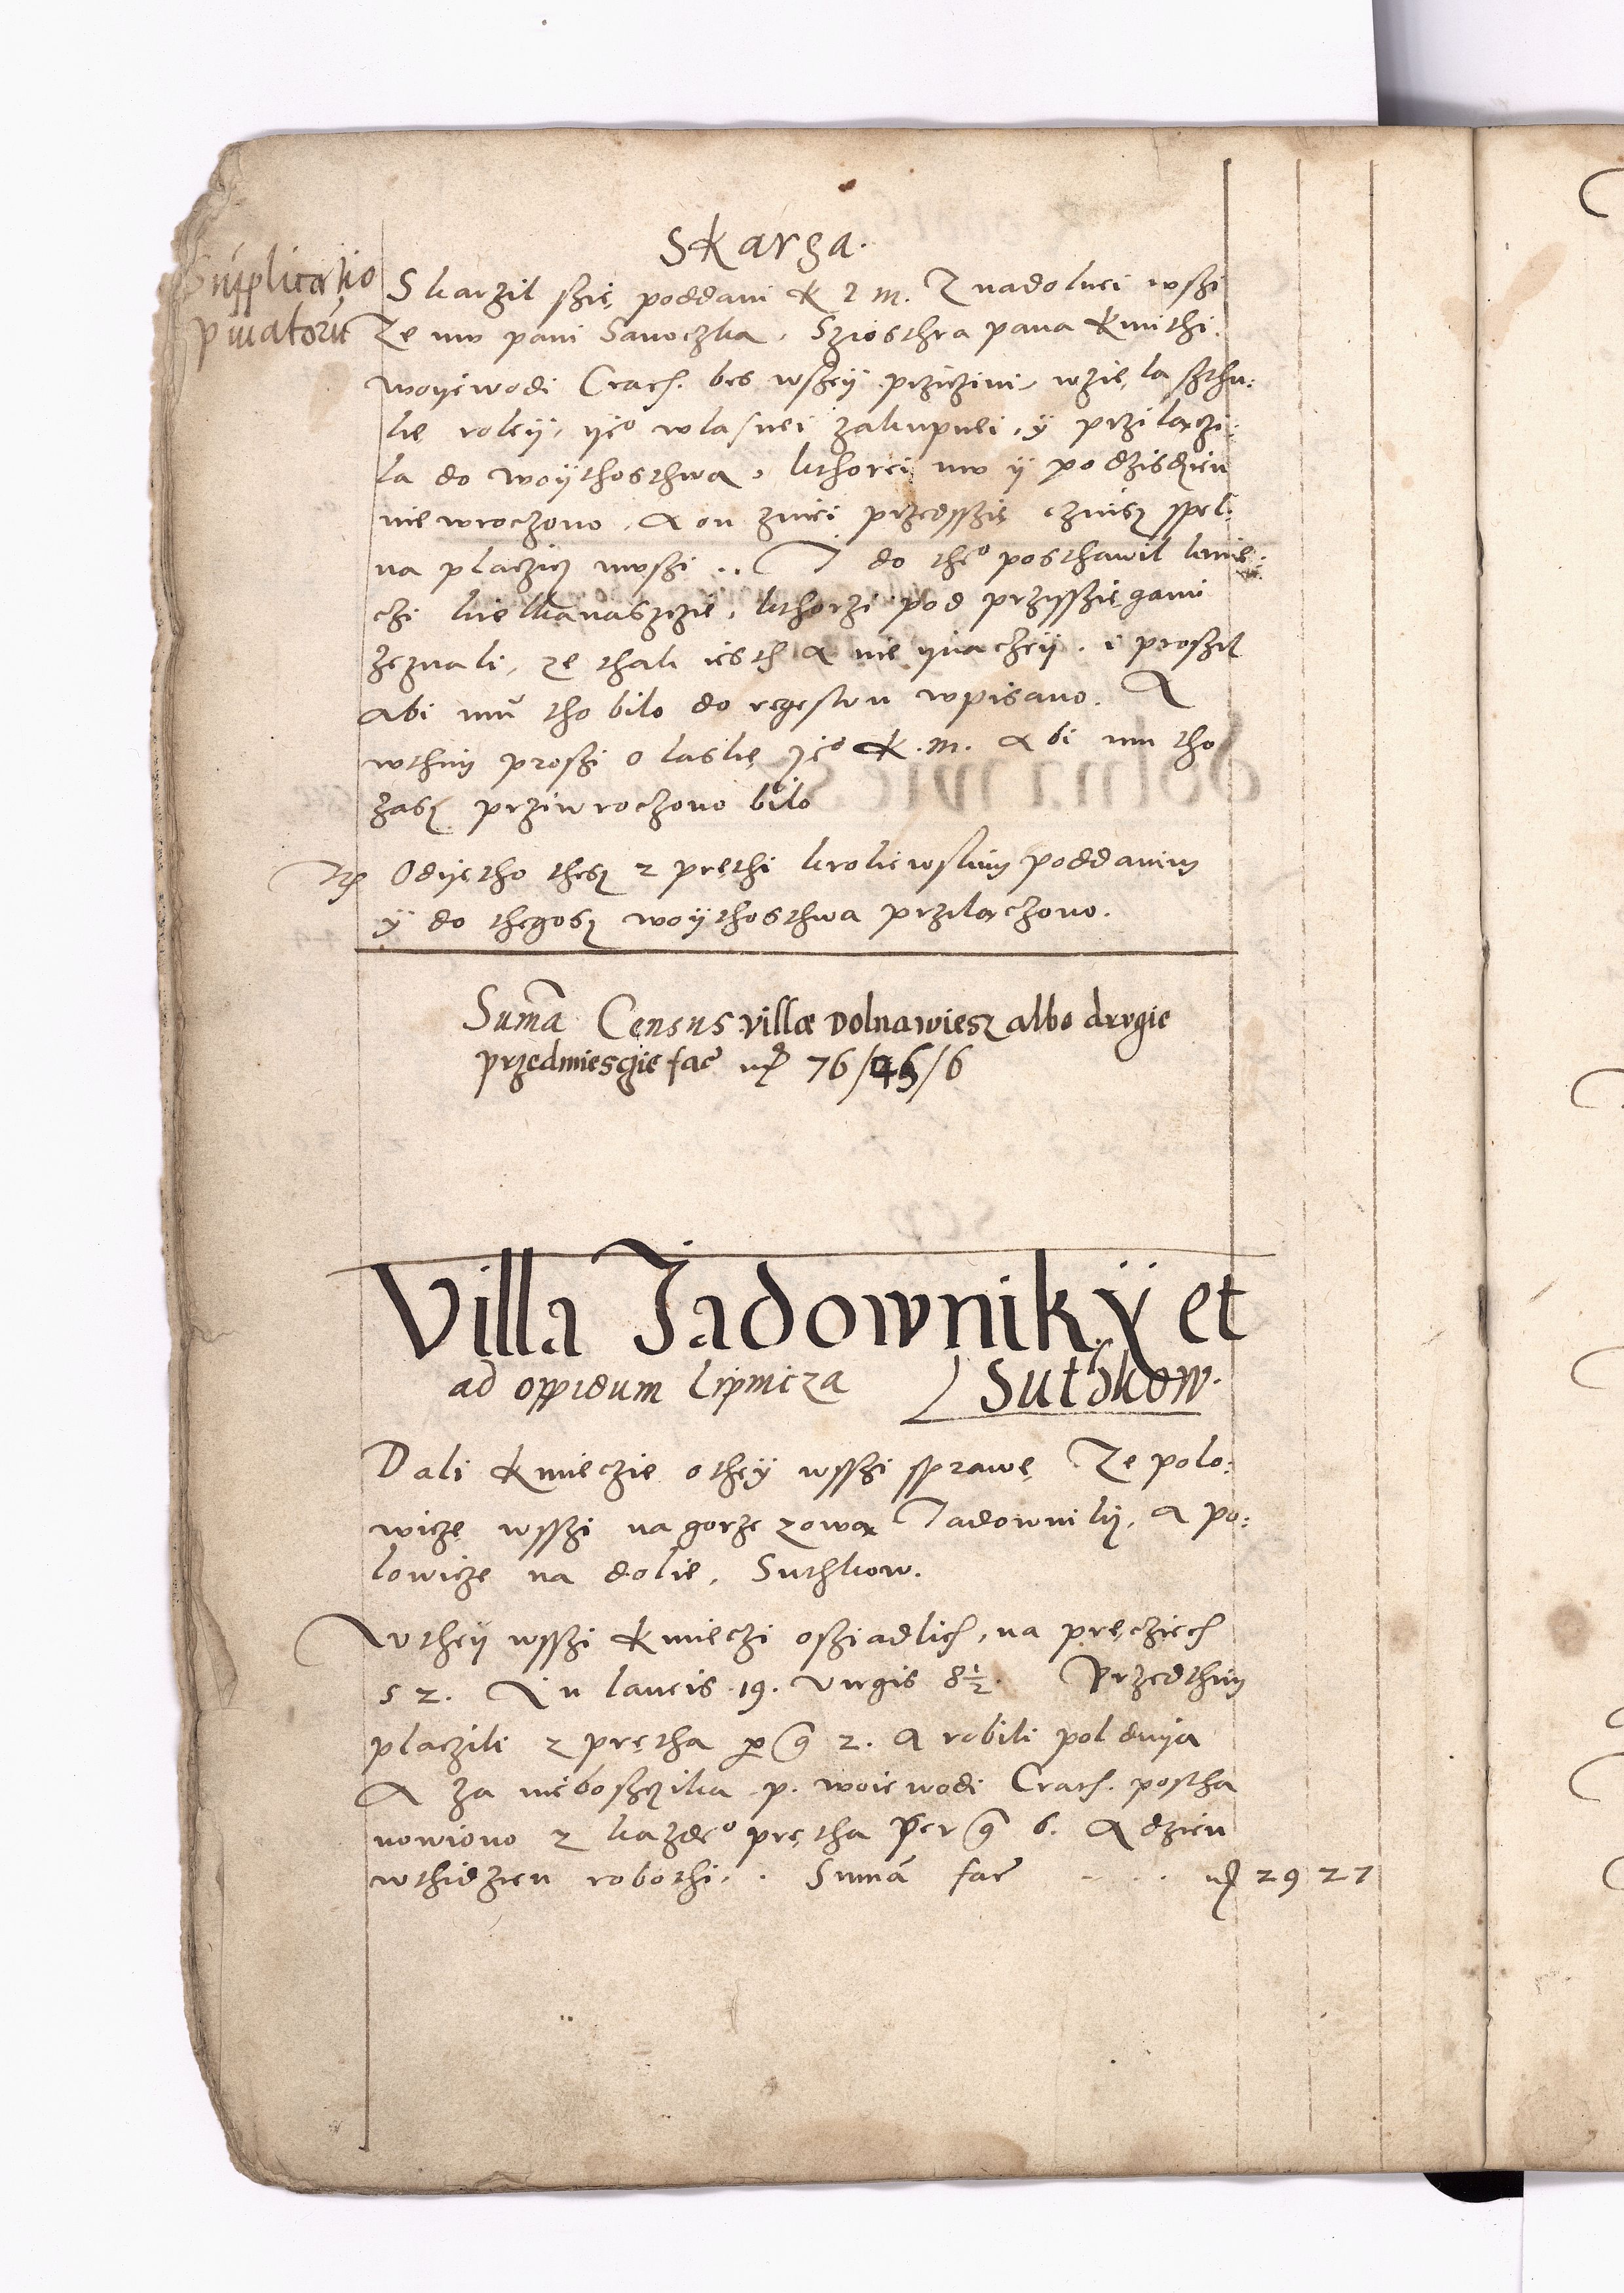 Skarga.
Supplicatio
privatorū
Skarzil szię poddani K J M. Z nadolnei wsZi
Ze mv pani Sanoczka, Sziosthra pana Kmithi
woyewodi Crach. bes wszeÿ prziczini, wzię la szthu:
kie roleÿ, ye° wlasnei zakupnei, ÿ przilączi:
la do woÿthosthwa, kthorei mv ÿ po dzisdzien
nie wroczono, A on zniei przedsszię czinsz spel:
na placzicz mvszi .. I do the° posthawil kmie:
czi kielkanaszczie, kthorzi pod przyssięgami
zeznali, ze thak iesth A nie ÿnaczeÿ. i prosził
Abi mŭ tho bilo do regestru wpisano. A
wthim proszi o laskę Je° K. M. A bi mu tho
zasz prziwroczono bilo
Itē Odyętho thesz 2 pręthi kroliewskim poddanim
ÿ do thegosz woÿthosthwa przilączono.
Sumā Census villæ Dolnawiesz albo drvgie
przedmiesczie fac mr 76/45/6
Villa Jadownikÿ et
ad oppidum Lipnicza Suthkow.
Dali Kmieczie otheÿ wsszi sprawę Ze polo:
wiczę wsszi na gorze zową Jadowniki, A po:
lowicze na dolie, Suthkow.
W theÿ wsszi Kmieczi osziadlich, na pręcziech
52. In laneis 19. Virgis 8½. Przedthim
placzili z prętha per g 2. A robili pol dnya
A za nieboszczika p. woiewodi Crach. postha
nowiono z kazde° prętha per g 6. A dzien
wthidzien robothi. . Sumā fac . . . mr 29 27